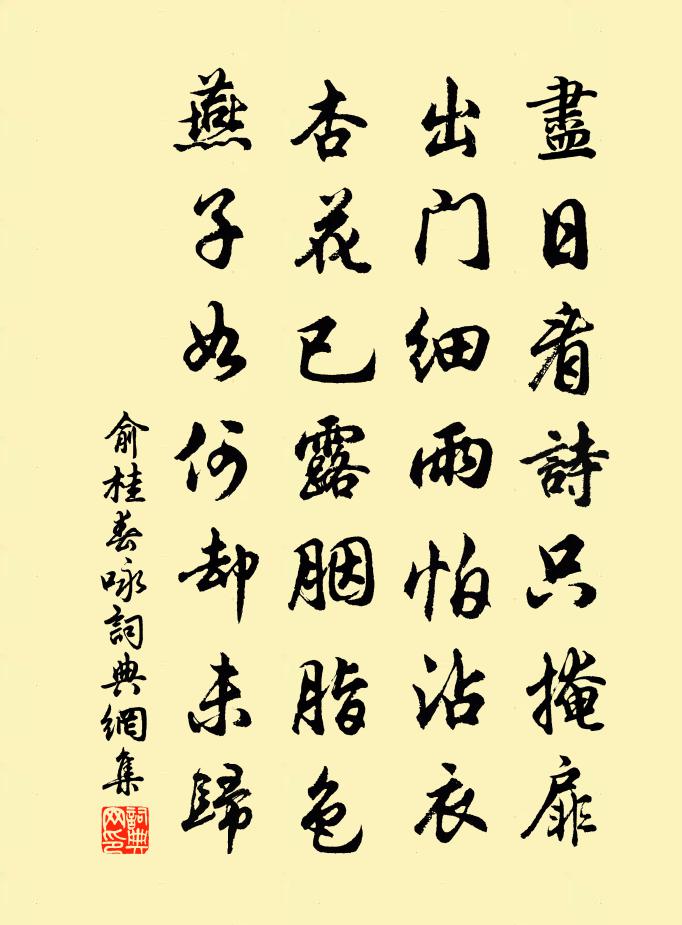 盡日看詩只掩扉
出门細雨怕沾衣
杏花已露胭脂色
燕子如何却未歸
俞桂春咏詞典網集
詞典网印